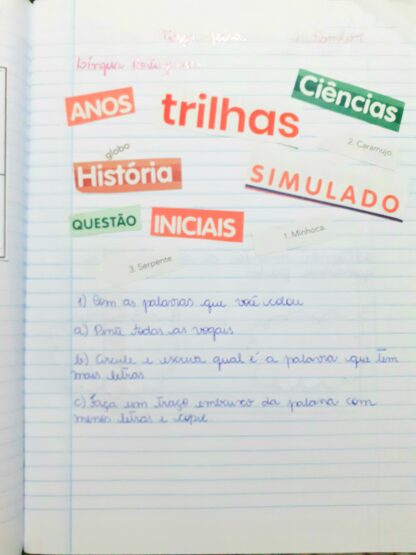 Língua Portuguesa
Ciências
ANOS
trilhas
2. Caramujo
globo
História
SIMULADO
QUESTÃO
INICIAIS
1. Minhoca
3. Serpente
1) Com as palavras que você colou
a) Pinte todas as vogais
b) Circule e escreva qual é a palavra que tem
mais letras
c) Faça um traço embaixo da palavra com
menos letras e copie